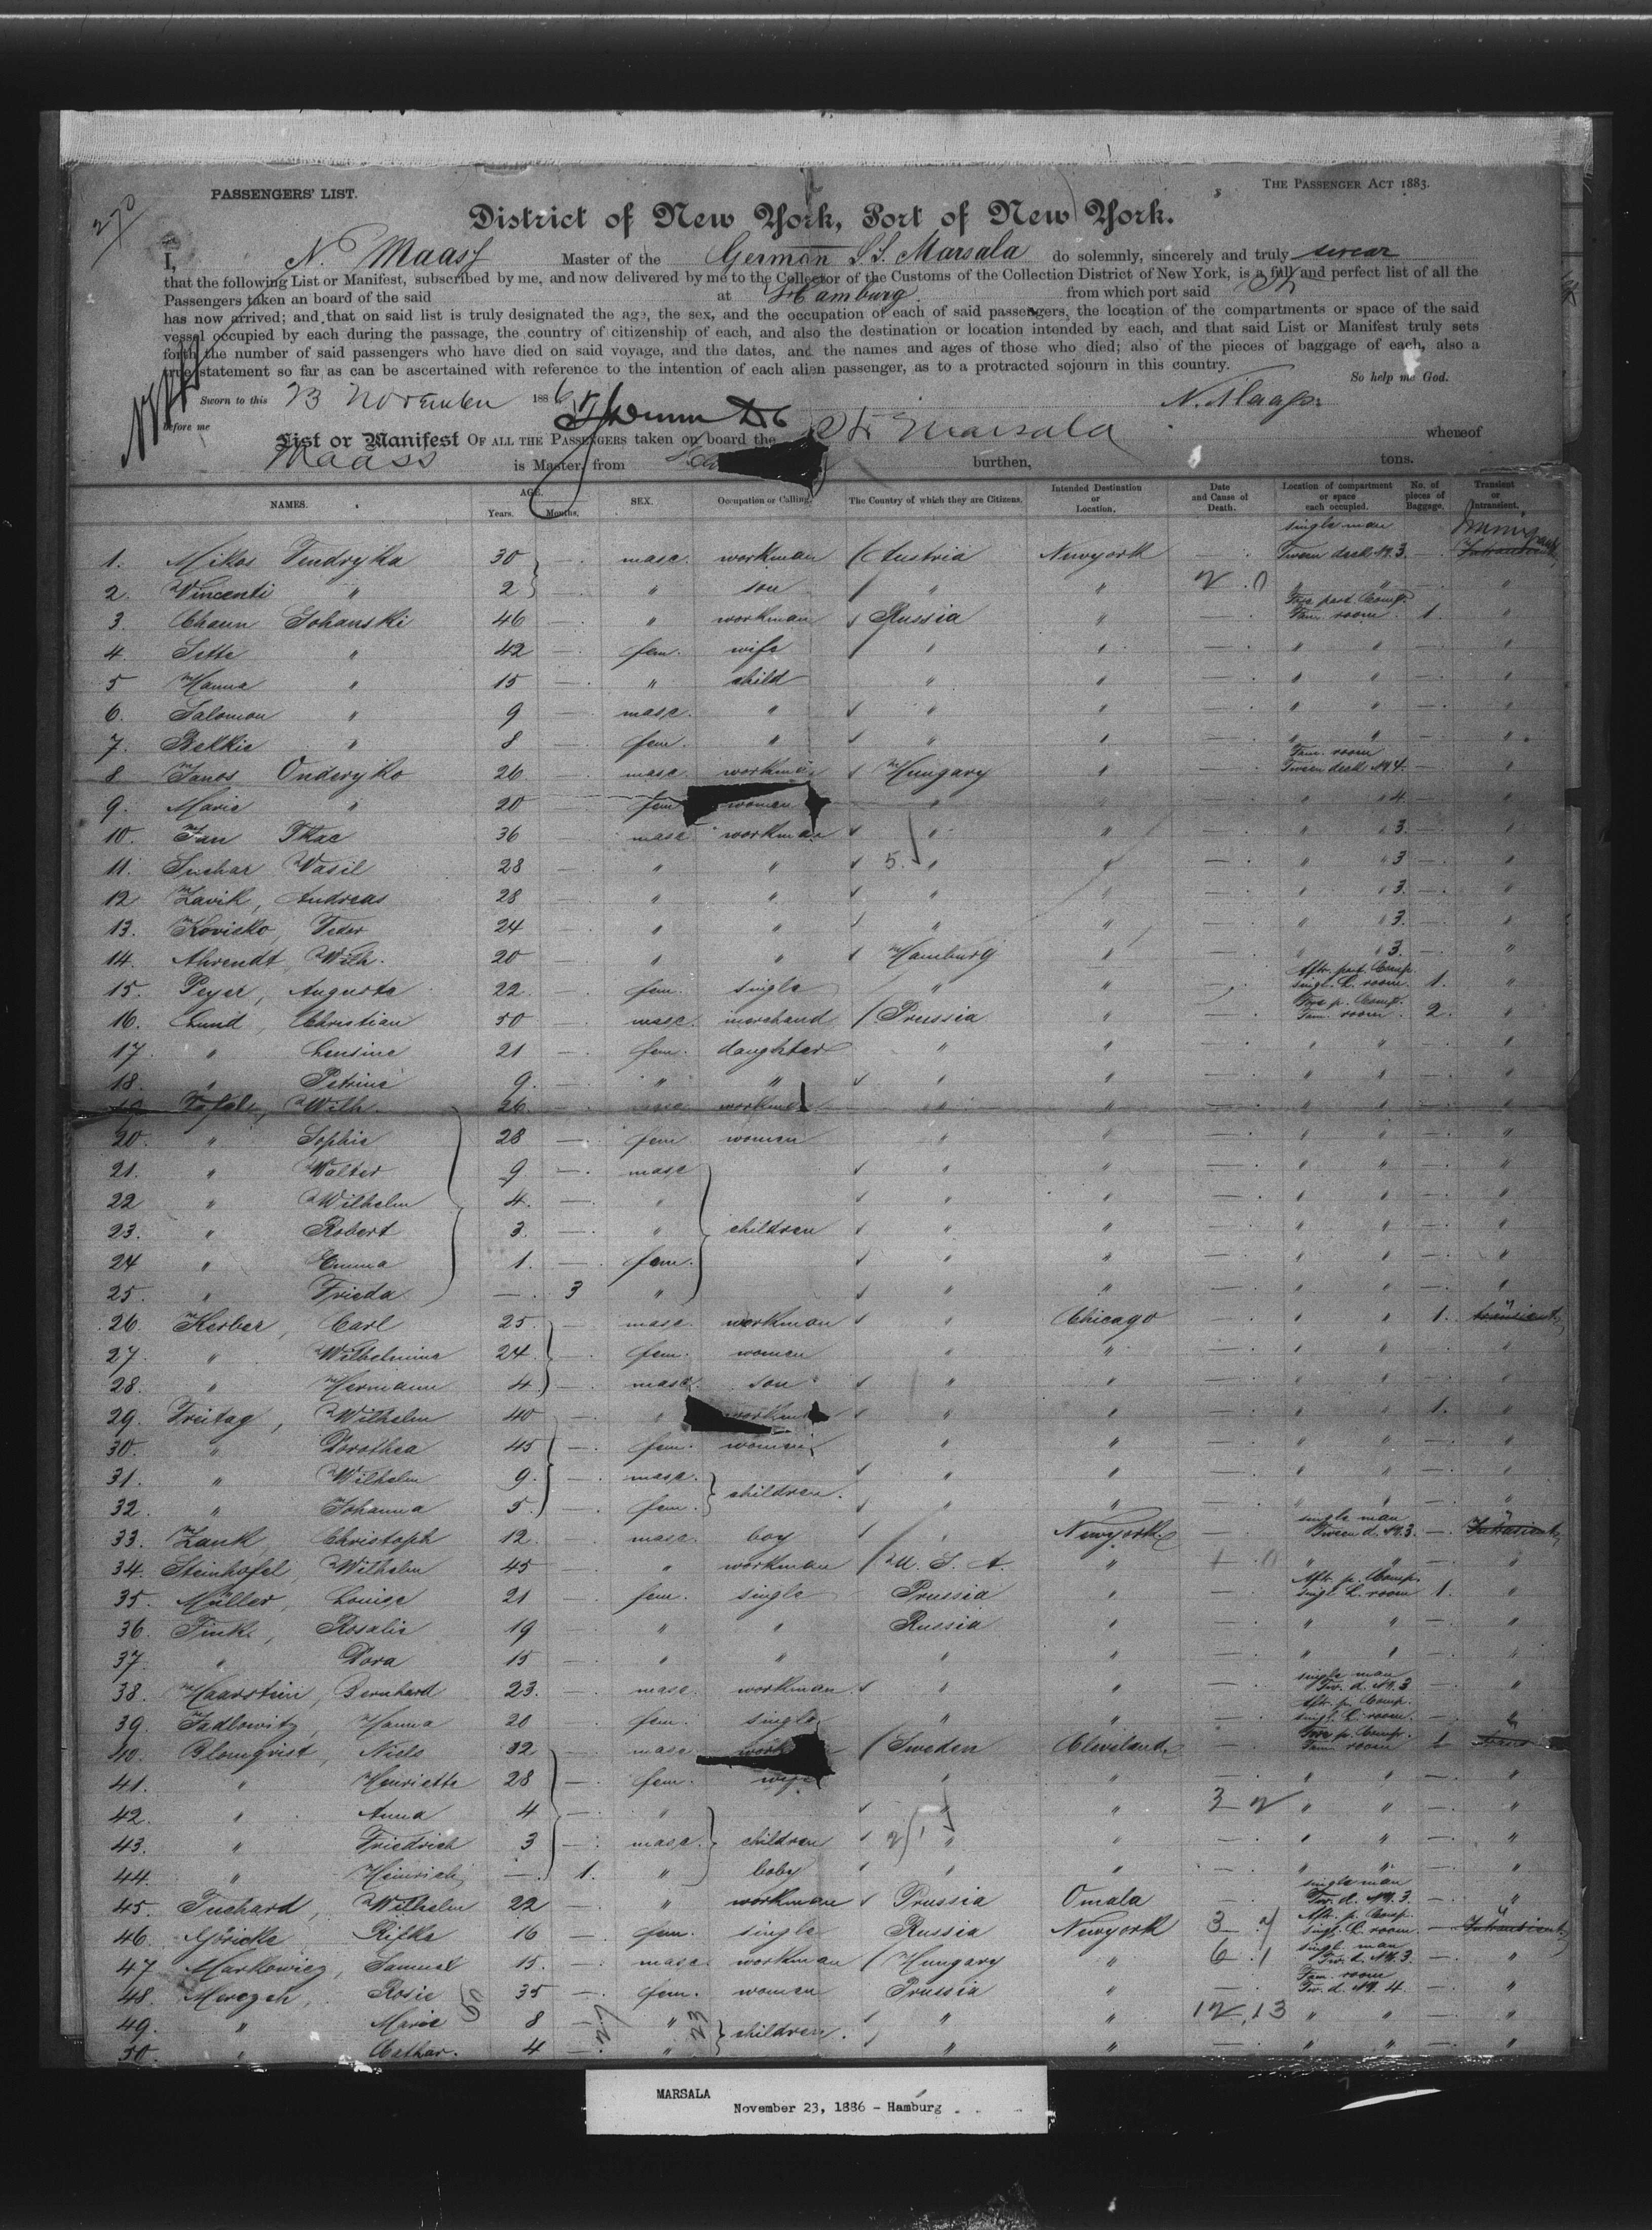 270
PASSENGERS' LIST.
THE PASSENGER ACT 1883.
District of New York, Port of New York.
I, N. Maass Master of the German S.S. Marsala do solemnly, sincerely and truly swear
that the following List or Manifest, subscribed by me, and now delivered by me to the Collector of the Customs of the Collection District of New York, is a full and perfect list of all the
Passengers taken an board of the said at Hamburg from which port said
has now arrived; and that on said list is truly designated the age, the sex, and the occupation of each of said passengers, the location of the compartments or space of the said
vessel occupied by each during the passage, the country of citizenship of each, and also the destination or location intended by each, and that said List or Manifest truly sets
forth the number of said passengers who have died on said voyage, and the dates, and the names and ages of those who died; also of the pieces of baggage of each, also a
true statement so far as can be ascertained with reference to the intention of each alien passenger, as to a protracted sojourn in this country.
So help me God.
Sworn to this 23 November 1886 N. Maass.
before me
List or Manifest OF ALL THE PASSENGERS taken on board the Str Marsala whereof
Maass is Master, from burthen, tons.
NAMES. AGE. Years. Months. SEX. Occupation or Calling. The Country of which they are Citizens. Intended Destination or Location. Date and Cause of Death. Location of compartment or space each occupied. No. of pieces of Baggage. Transient or Intransient.
1. Mikos Tindryka 30 — masc. workman Austria Newyork — single man Tween deck No. 3. —
2. Vincenti " 2 " son " " " " "
3. Chaun Johanski 46 — " workman Russia " — Fore part Comp. Fam. room 1. "
4. Sette " 42 — fem. wife " " — " " — "
5 Hanna " 15 — " child " " — " " — "
6. Salomon " 9 — masc. " " " — " " — "
7. Balkie " 8 — fem. " " " — " " — "
8 Janos Onderyko 26 — masc. workman Hungary " — Fam. room Tween deck No 4. — "
9. Marie " 20 — fem woman " " " 4. — "
10. Jan Tkac 36 — masc. workman " " " 3. "
11. Suchar Wasil 28 — " " 5. " " — " 3 — "
12 Zavik, Andreas 28 — " " " " — " 3. — "
13. Kovisko, Feder 24 — " " " " — " 3. — "
14. Ahrendt, Wilh. 20 — " " Hamburg " — " 3. — "
15. Peyer, Augusta 22 — fem. single " " Aftr. part Comp. singl. L. room. 1. "
16. Lund, Christian 50 — masc. merchand Prussia " — Fore p. Comp. Fam. room 2. "
17. " Lensine 21 — fem. daughter " " — " " — "
18. " Petrine 9. — " " " " — " " — "
19. Wilh. 26 — masc workman " " — " " — "
20. " Sophie 28 — fem woman " " — " " — "
21. " Walter 9 — masc " " — " " — "
22 " Wilhelm 4. — " " " — " " — "
23. " Robert 3. — " children " " — " " — "
24 " Emma 1. — fem. " " — " " — "
25. " Frieda — 3 " " " — " " — "
26. Kerber, Carl 25 — masc. workman " Chicago — " " 1. transient
27. " Wilhelmina 24 — fem. woman " " — " " — "
28. " Hermann 4 — masc. son " " — " " — "
29. Freitag, Wilhelm 40 — " workman " " — " " 1. "
30. " Dorothea 45 — fem. woman " " — " " — "
31. " Wilhelm 9. — masc. " " — " " — "
32. " Johanna 5. — fem. children. " " — " " — "
33. Zank Christoph 12. — masc. boy " Newyork. — single man Tween d. No. 3. — Intransient
34. Steinhofel, Wilhelm 45 — " workman U. S. A. " " " — "
35. Müller, Louise 21 — fem. single Prussia " — Aftr. p. Comp. singl. L. room 1. "
36. Fink, Rosalie 19 — " " Russia " — " " — "
37. " Dora 15 — " " " " — " " — "
38. Haarstein, Bernhard 23. — masc. workman " " — single man Tw. d. No. 3 — "
39. Jadlowitz, Hanna 20 — fem. single " " — Aftr. p. Comp. singl. L. room. — "
40. Blomqvist, Niels 32 — masc work Sweden Cleveland. — Fore p. Comp. Fam. room 1 trans
41. " Henriette 28 — fem. wife " " — " " — "
42. " Anna 4 — " " " 3 " " — "
43. " Friedrich 3 — masc. children " " — " " — "
44. " Heinrich — 1. " baby " " " " — "
45. Tuchard, Wilhelm 22 — " workman Prussia Omala — single man Tw. d. No. 3. — "
46. Göricke Rifka 16 — fem. single Russia Newyork 3 Aftr. p. Comp. singl. L. room. — Intransient
47 Markowicz, Samuel 15. — masc. workman Hungary " 6 1 singl. man Tw. d. No. 3. — "
48. Merczeh, Rosie 35 — fem. woman Prussia " — Fam. room Tw. d. No. 4. — "
49. " Marie 8 — " " " 12, 13 " " — "
50. " Cathar. 4 — 23 " children. " " — " " — "
MARSALA
November 23, 1886 - Hamburg